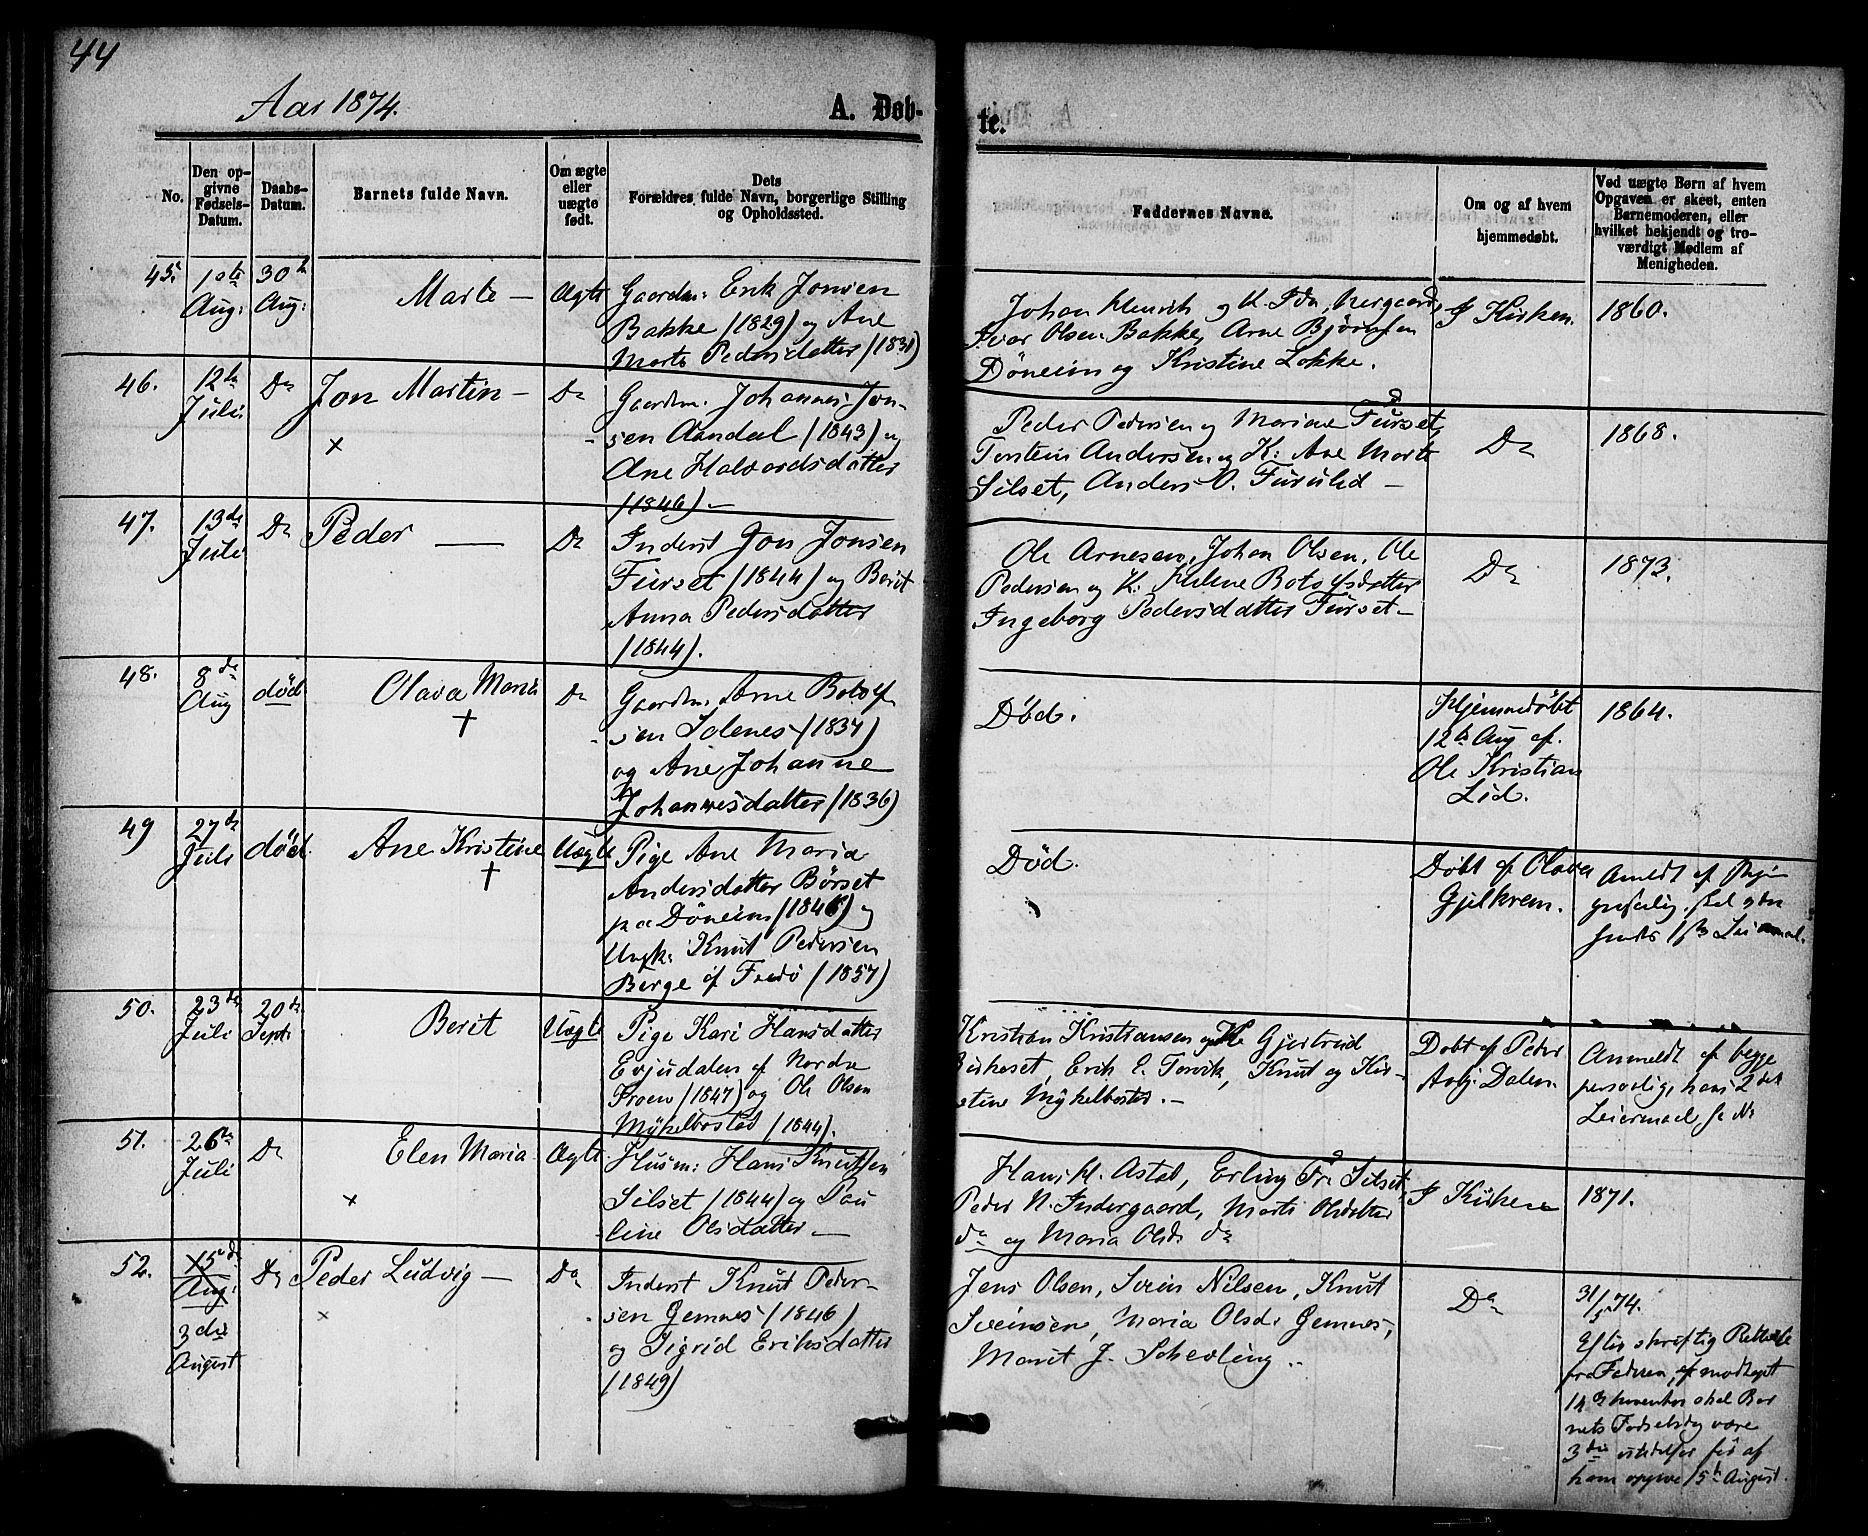 44
Aar 1874.
A. Døb-
te.
No.
Den op-
givne
Fødsels-
Datum.
Daabs-
Datum.
Barnets fulde Navn.
Om ægte
eller
uægte
født.
Dets
Forældres fulde Navn, borgerlige Stilling
og Opholdssted.
Faddernes Navne.
Om og af hvem
hjemmedøbt.
Ved uægte Børn af hvem
Opgaven er skeet, enten
Barnemoderen, eller
hvilket bekjendt og tro-
værdigt Medlem af
Menigheden.
45.
1ste
Aug:
30te
Aug:
Marte —
Ægte
Gaardm: Erik Jonsen
Bakke (1829) og Ane
Marte Pedersdatter (1831)
Johan Henrik og K. Ida Nergaard,
Ivar Olsen Bakke, Arne Bjørnsen
Döneim og Kristine Løkke.
I Kirken.
1860.
46.
12te
Juli
Do
Jon Martin —
×
Do
Gaardm. Johannes Jon-
sen Aandal (1843) og
Ane Halvordsdatter
(1846). —
Peder Pedersen og Mariane Furset,
Torstein Andersen og K: Ane Marte
Silset, Anders O. Furulid —
Do
1868.
47.
13de
Juli
Do
Peder —
Do
Inderst Jon Jonsen
Furset (1844) og Berit
Anna Pedersdatter
(1844).
Ole Arnesen, Johan Olsen, Ole
Pedersen og K: Helene Botolfsdatter
Ingeborg Pedersdatter Furset —
Do
1873.
48.
8de
Aug
død
Olava Maria
†
Do
Gaardm. Arne Botolf-
sen Solenes (1834)
og Ane Johanne
Johannesdatter (1836)
Död.
Hjemmedöbt
12te Aug af
Ole Kristian
Lid.
1864.
49
27de
Juli
død.
Ane Kristine
†
Uægte
Pige Ane Maria
Andersdatter Børset
paa Döneim (1846) og
Ungk: Knut Pedersen
Berge af Fredö (1857)
Död.
Döbt af Olava
Gjelkrem.
Anmeldt af
50.
23de
Juli
20de
Sept:
Berit
Uægte
Pige Kari Hansdatter
Evjudalen af Nordre
Froen (1847) og Ole Olsen
Mÿkelbostad (1844).
Kristian Kristiansen og K Gjertrud
Birkeset, Erik E. Torvik, Knut og Kir-
stine Mÿkelbostad. —
Döbt af Peder
Asbj: Dalen.
Anmeldt af begge
personlig, hans 2det
Leiermaal,
51.
26de
Juli
Do
Elen Maria
×
Ægte
Husm: Hans Knutsen
Silset (1844) og Pau-
line Olsdatter —
Hans H. Astad, Erling Fr. Silset,
Peder N. Indergaard, Marte Olsdatter
do og Maria Olsd. do
I Kirken
1871.
52.
15de
Aug:
3die
August
Do
Peder Ludvig —
×
Do
Inderst Knut Peder-
sen Gemnes (1846)
og Sigrid Eriksdatter
(1849)
Jens Olsen, Svein Nilsen, Knut
Sveinsen, Maria Olsd. Gemnes,
Marit J. Schevling. —
Do
31/5 74.
Efter skriftlig Rettelse
fra Faderen, modtaget
November skal Bar-
nets Födselsdag være
3die istedetfor för af
ham opgivne 15de August.